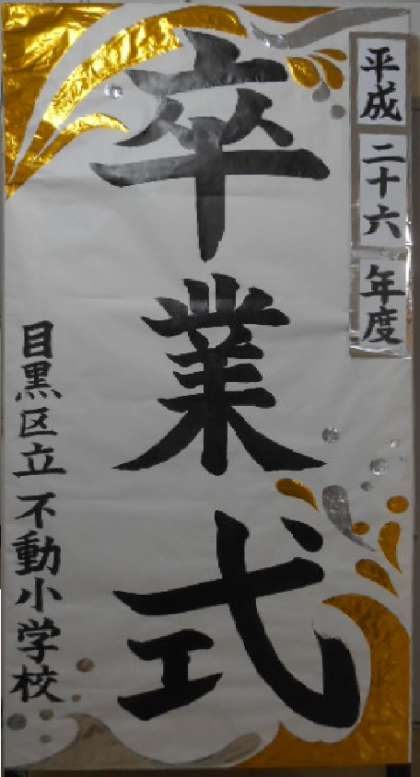 平成二十六年度
卒業式
目黒区立不動小学校